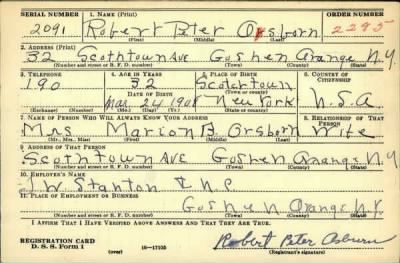 SERIAL NUMBER 1. NAME (Print) ORDER NUMBER
2091 Robert Peter Orsborn 2285
(First) (Middle) (Last)
2. ADDRESS (Print)
32 Scothtown Ave Goshen Orange N.Y.
(Number and street or R. F. D. number) (Town) (County) (State)
3. TELEPHONE 4. AGE IN YEARS 5. PLACE OF BIRTH 6. COUNTRY OF CITIZENSHIP
190 32 Scotchtown
DATE OF BIRTH (Town or county)
Mar 24 1908 New York U.S.A.
(Exchange) (Number) (Mo.) (Day) (Yr.) (State or country)
7. NAME OF PERSON WHO WILL ALWAYS KNOW YOUR ADDRESS 8. RELATIONSHIP OF THAT PERSON
Mrs Marion B. Orsborn Wife
(Mr., Mrs., Miss) (First) (Middle) (Last)
9. ADDRESS OF THAT PERSON
Scothtown Ave Goshen Orange N.Y
(Number and street or R. F. D. number) (Town) (County) (State)
10. EMPLOYER'S NAME
J W. Stanton
11. PLACE OF EMPLOYMENT OR BUSINESS
Goshen Orange N.Y.
(Number and street or R. F. D. number) (Town) (County) (State)
I AFFIRM THAT I HAVE VERIFIED ABOVE ANSWERS AND THAT THEY ARE TRUE.
REGISTRATION CARD
D. S. S. Form 1 (over) 16—17105 Robert Peter Osborn
(Registrant's signature)